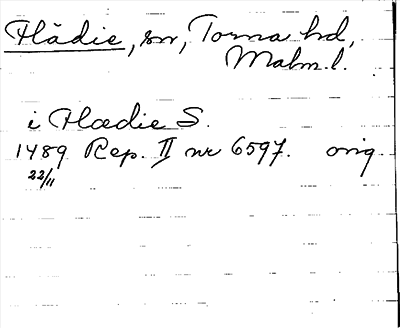 Flädie, sn, Torna hd,
Malm. l.
i Flædie S.
1489 Rep. II nr 6597. orig.
22/11